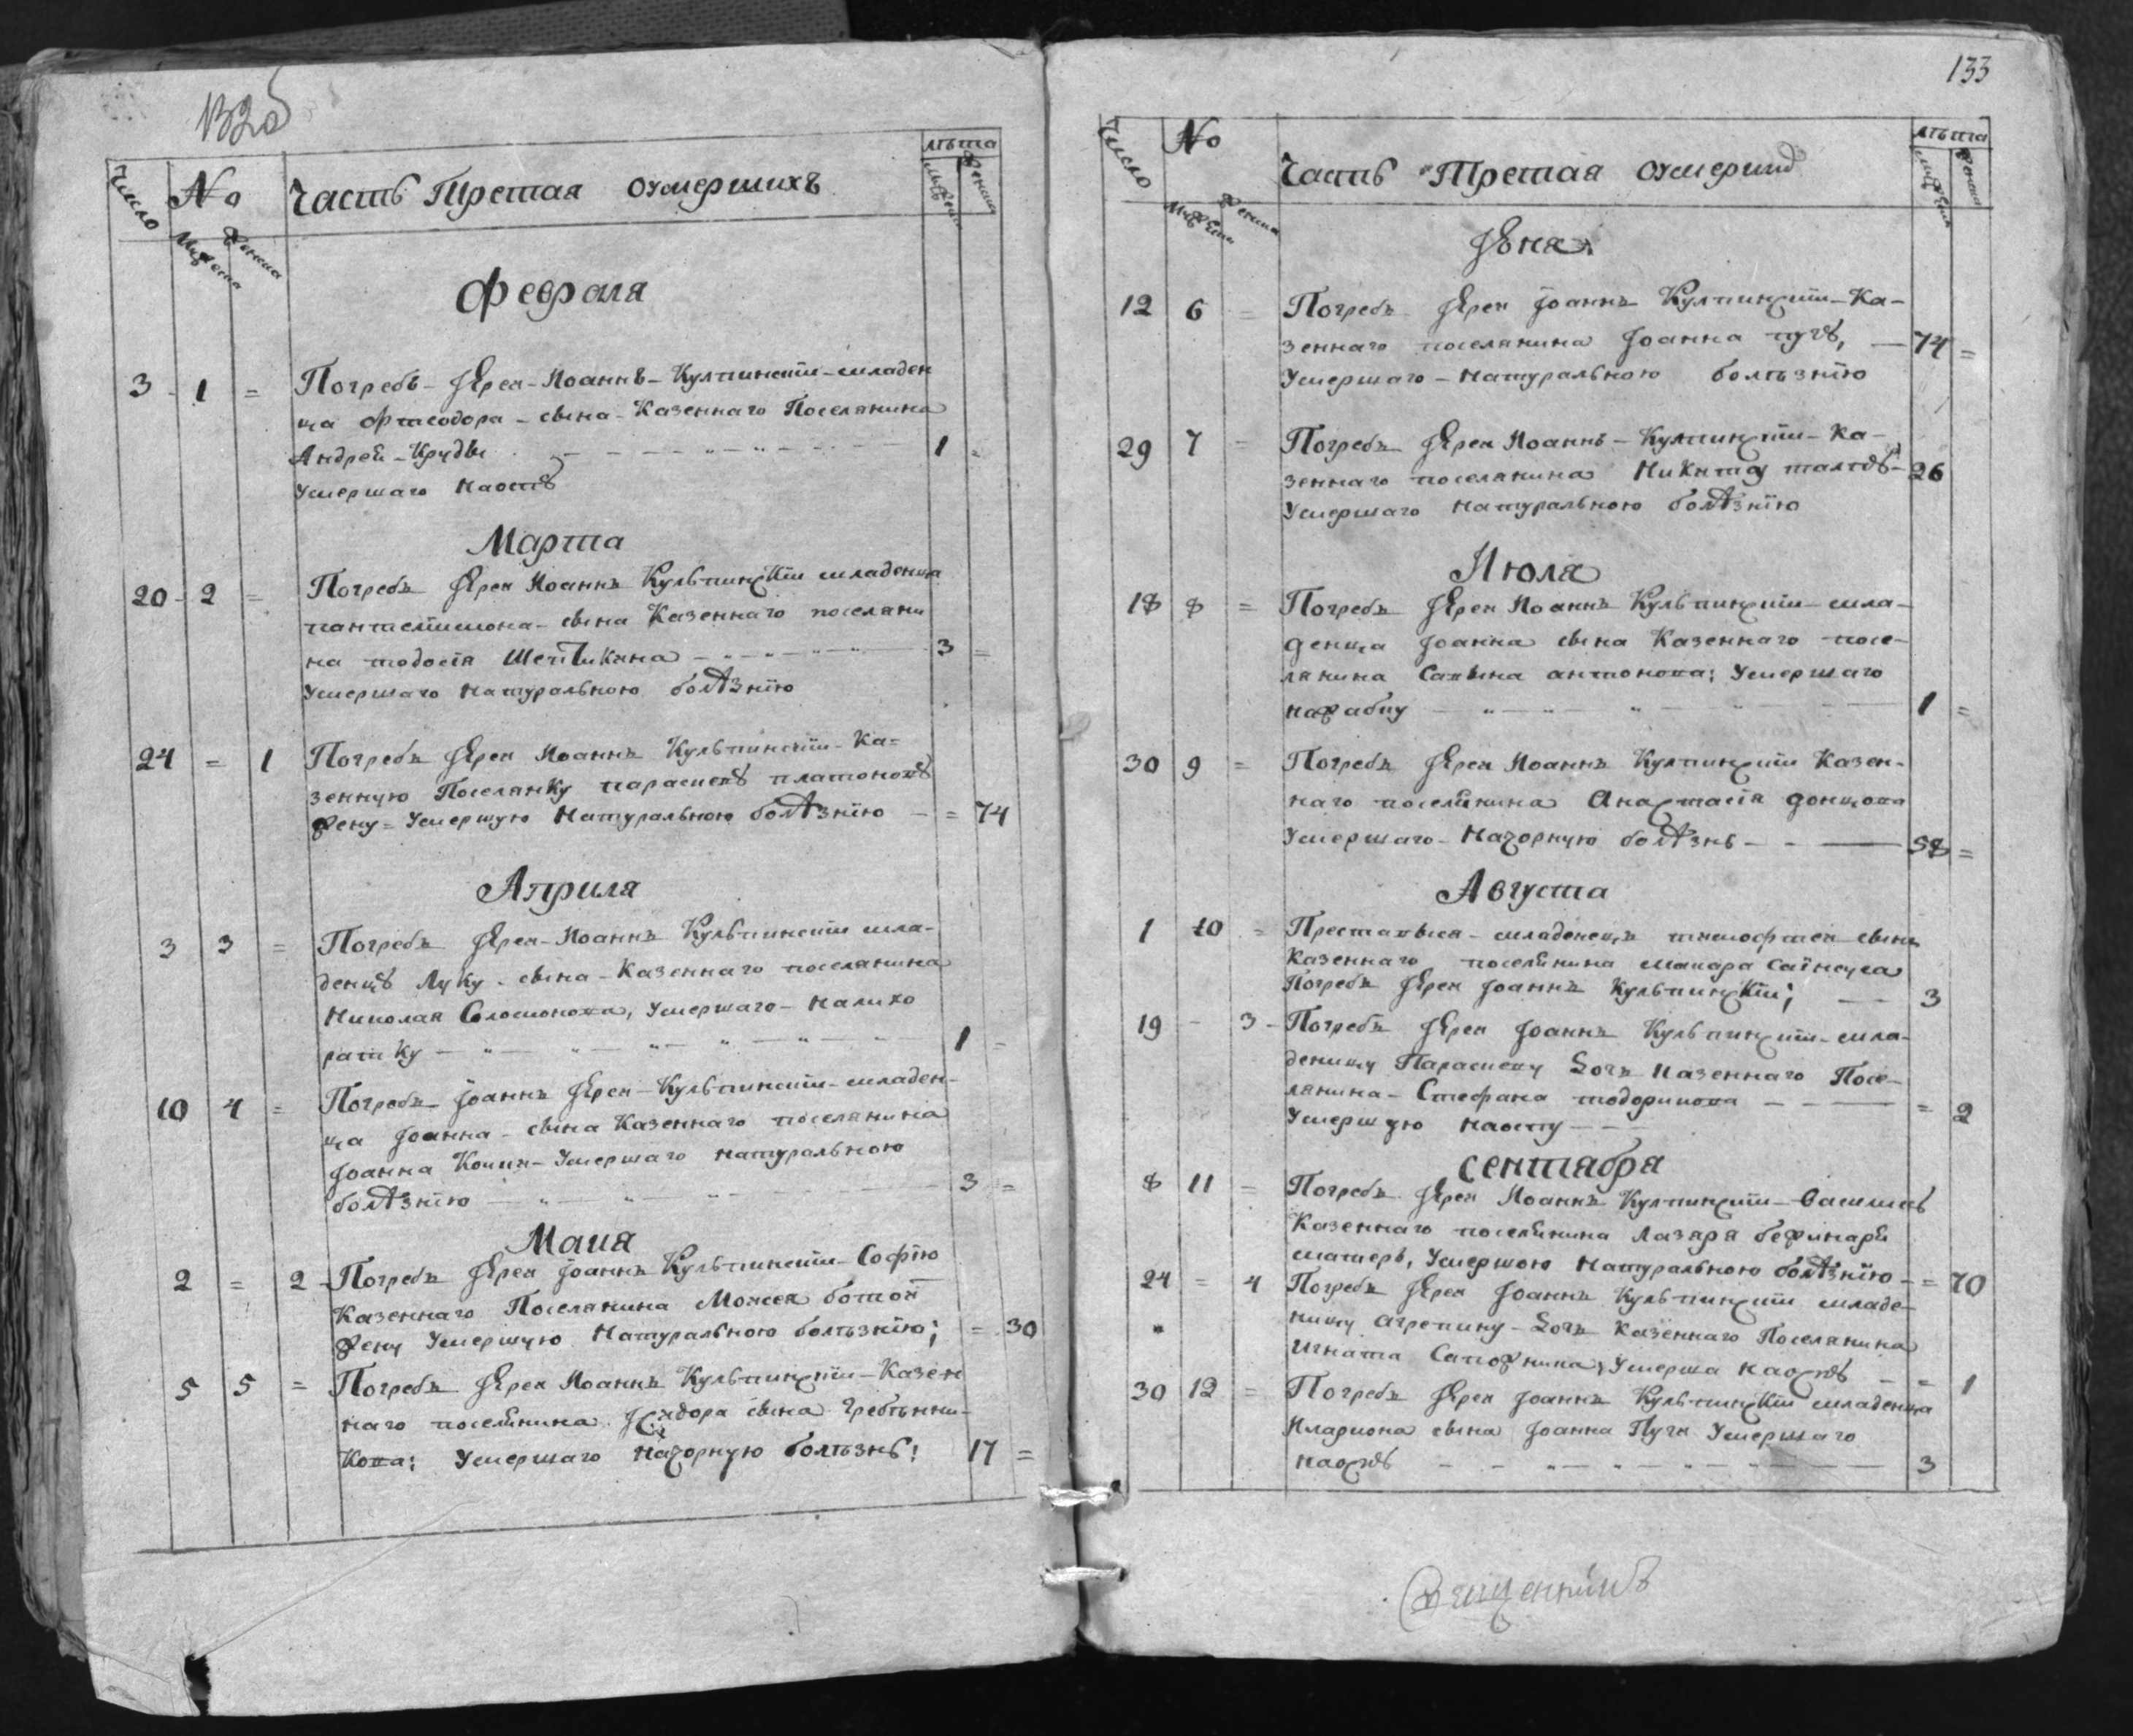 132об
Число
No
Мужеска
Женска
Часть Третая оумершихъ
лѣта
Мужеска
Женска
Февраля
3 1 = Погребъ Іерей Иоаннъ Кулпинскїи младен
ца Фтеодора сына Казеннаго Поселянина
Андрей Круды 1 =
Умершаго Наоспѣ
Марта
20 2 = Погребъ Іерей Иоаннъ Кульпинскїи младенца
пантелїимона сына Казеннаго поселяни
на тодосїя 3 =
Умершаго Натуральною болѣзнїю
24 = 1 Погребъ Іерей Иоаннъ Кульпинскїи Ка=
зенную Поселянку параскевѣ платоновѣ
жену = Умершую Натуральною болѣзнїю = 74
Априля
3 3 = Погребъ Іерей Иоаннъ Кульпинскїи мла-
денцѣ Луку сына Казеннаго поселянина
Николая Соломонова, Умершаго Налихо
ратку 1 =
10 4 = Погребъ Іоаннъ Іерей Кульпинскїи младен-
ца Іоанна сына Казеннаго поселянина
Іоанна Умершаго натуральною
болѣзнїю 3 =
Маия
2 = 2 Погребъ Іерей Іоаннъ Кульпинскїи Софїю
Казеннаго Поселянина Моисея
жену Умершую Натуральною болѣзнїю; = 30
5 5 = Погребъ Іерей Иоаннъ Кульпинскїи Казен
наго поселянина Ісидора сына Гребѣнни-
кова: Умершаго Начорную болѣзнь: 17 =
133
Число
No
Мужеска
Женска
Часть Третая оумерших
лѣта
Мужеска
Женска
Іюня
12 6 = Погребъ Іерей Іоаннъ Кулпинскїи Ка-
зеннаго поселянина Іоанна пугѣ, 74 =
Умершаго Натуральною болѣзнїю
29 7 = Погребъ Іерей Иоаннъ Кулпинскїи Ка-
зеннаго поселянина Никиту 26
Умершаго Натуральною болѣзнїю
Июля
18 8 = Погребъ Іерей Иоаннъ Кульпинскїи мла-
денца Іоанна сына Казеннаго посе-
лянина Савына антонова; Умершаго
Нажабпу 1 =
30 9 = Погребъ Іерей Иоаннъ Кулпинскїи Казен-
наго поселянина Анастасїя донцова
Умершаго Начорную болѣзнь 58 =
Августа
1 10 = Преставыся младенецъ тимофтей сынъ
Казеннаго поселянина макара
Погребъ Іерей Іоаннъ Кульпинскїи; 3
19 3 Погребъ Іерей Іоаннъ Кульпинскїи мла-
деницу Параскеву Дочь Казеннаго Посе-
лянина Стефана тодорикова = 2
Умершую Наоспу
Сентября
8 11 = Погребъ Іерей Иоаннъ Кулпинскїи
Казеннаго поселянина Лазаря
матерь, Умершою Натуральною болѣзнїю = 70
24 = 4 Погребъ Іерей Іоаннъ Кульпинскїи младе-
ницу агрепину Дочь Казеннаго Поселянина
Игната Сапожника, Умерша наоспѣ = 1
30 12 = Погребъ Іерей Іоаннъ Кульпинскїи младенца
Илариона сына Іоанна Пуги Умершаго
наоспѣ 3
Священникъ